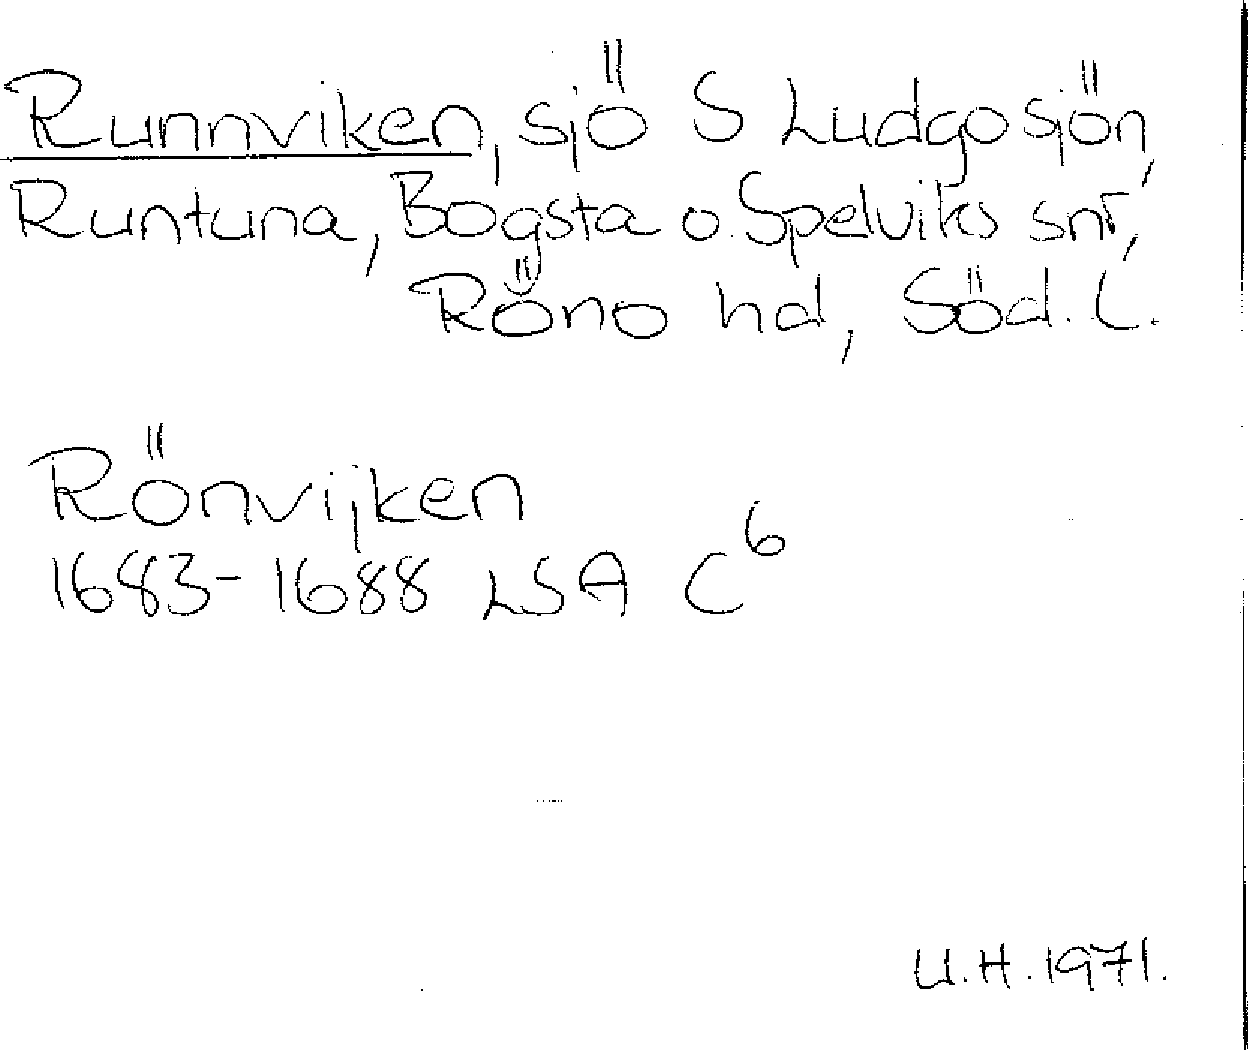 Runnviken, sjö S Ludgosjön,
Runtuna, Bogsta o. Spelviks snr,
Rönö hd, Söd. L.
Rönvijken
1683-1688 LSA C⁶
U.H. 1971.